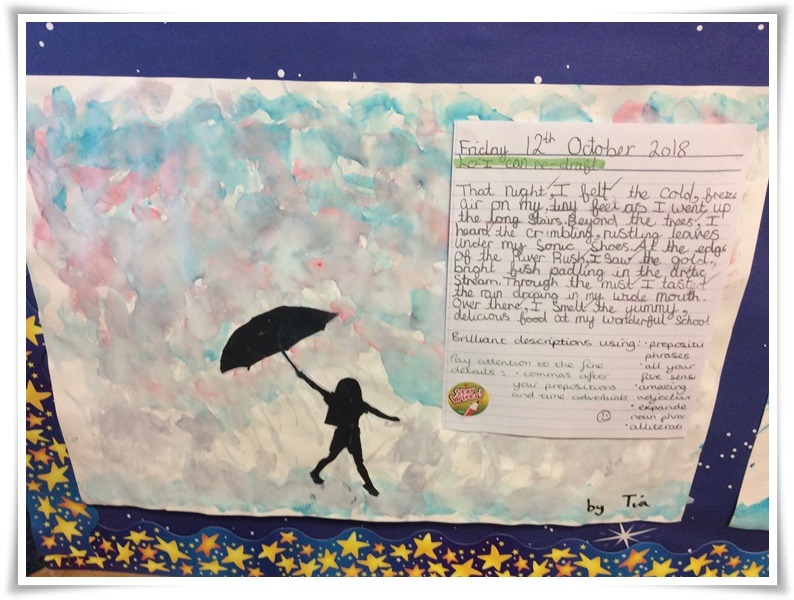 Friday 12th October 2018
Lo: I can re-draft
That night, I felt the cold, freeze
air on my tiny feet as I went up
the long stairs. Beyond the trees, I
heard the crimbling, rustling leaves
under my Sonic shoes. At the edge
of the River Rush, I saw the gold,
bright fish padling in the arctic
stream. Through the mist I taste
the rain droping in my whole mouth.
Over there, I smelt the yummy,
delicious food at my wonderful School
Brilliant descriptions using: · prepositi
phrases
· all your
five sens
· amazing
adjectiv
· expande
noun phra
· alliterati
Pay attention to the fine
details: · commas after
your prepositions
and time adverbials
Star Writer!
by Tia